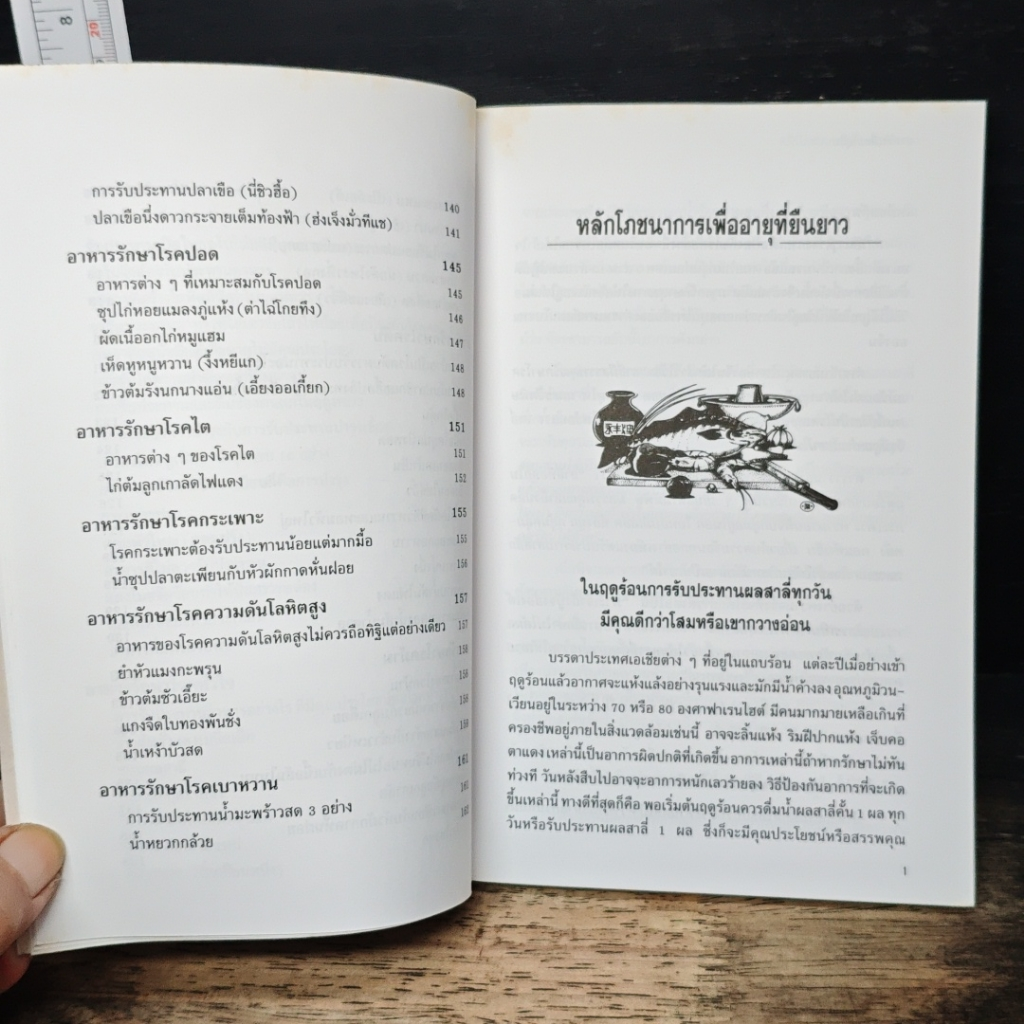 การรับประทานปลาเขือ (นี่ชิวฮื้อ) 140
ปลาเขือนึ่งดาวกระจายเต็มท้องฟ้า (ฮ่งเจ็งมั่วทีแช) 141
อาหารรักษาโรคปอด 145
อาหารต่าง ๆ ที่เหมาะสมกับโรคปอด 145
ซุปไก่หอยแมลงภู่แห้ง (ตำไฉ่โกยทึง) 146
ผัดเนื้ออกไก่หมูแฮม 147
เห็ดหูหนูหวาน (งิ้งหยีแก) 148
ข้าวต้มรังนกนางแอ่น (เอี้ยงออเกี้ยก) 148
อาหารรักษาโรคไต 151
อาหารต่าง ๆ ของโรคไต 151
ไก่ต้มลูกเกาลัดไฟแดง 152
อาหารรักษาโรคกระเพาะ 155
โรคกระเพาะต้องรับประทานน้อยแต่มากมื้อ 155
น้ำซุปปลาตะเพียนกับหัวผักกาดหั่นฝอย 156
อาหารรักษาโรคความดันโลหิตสูง 157
อาหารของโรคความดันโลหิตสูงไม่ควรถือทิฐิแต่อย่างเดียว 157
ยำหัวแมงกะพรุน 158
ข้าวต้มซัวเอี๊ยะ 159
แกงจืดใบทองพันชั่ง 159
น้ำเหง้าบัวสด 159
อาหารรักษาโรคเบาหวาน 161
การรับประทานน้ำมะพร้าวสด 3 อย่าง 161
น้ำหยวกกล้วย 162
หลักโภชนาการเพื่ออายุที่ยืนยาว
ในฤดูร้อนการรับประทานผลสาลี่ทุกวัน
มีคุณดีกว่าโสมหรือเขากวางอ่อน
บรรดาประเทศเอเชียต่าง ๆ ที่อยู่ในแถบร้อน แต่ละปีเมื่อย่างเข้า
ฤดูร้อนแล้วอากาศจะแห้งแล้งอย่างรุนแรงและมักมีน้ำค้างลง อุณหภูมิวน-
เวียนอยู่ในระหว่าง 70 หรือ 80 องศาฟาเรนไฮต์ มีคนมากมายเหลือเกินที่
ครองชีพอยู่ภายในสิ่งแวดล้อมเช่นนี้ อาจจะลิ้นแห้ง ริมฝีปากแห้ง เจ็บคอ
ตาแดง เหล่านี้เป็นอาการผิดปกติที่เกิดขึ้น อาการเหล่านี้ถ้าหากรักษาไม่ทัน
ท่วงที วันหลังสืบไปอาจจะอาการหนักเลวร้ายลง วิธีป้องกันอาการที่จะเกิด
ขึ้นเหล่านี้ ทางดีที่สุดก็คือ พอเริ่มต้นฤดูร้อนควรดื่มน้ำผลสาลี่คั้น 1 ผล ทุก
วันหรือรับประทานผลสาลี่ 1 ผล ซึ่งก็จะมีคุณประโยชน์หรือสรรพคุณ
1